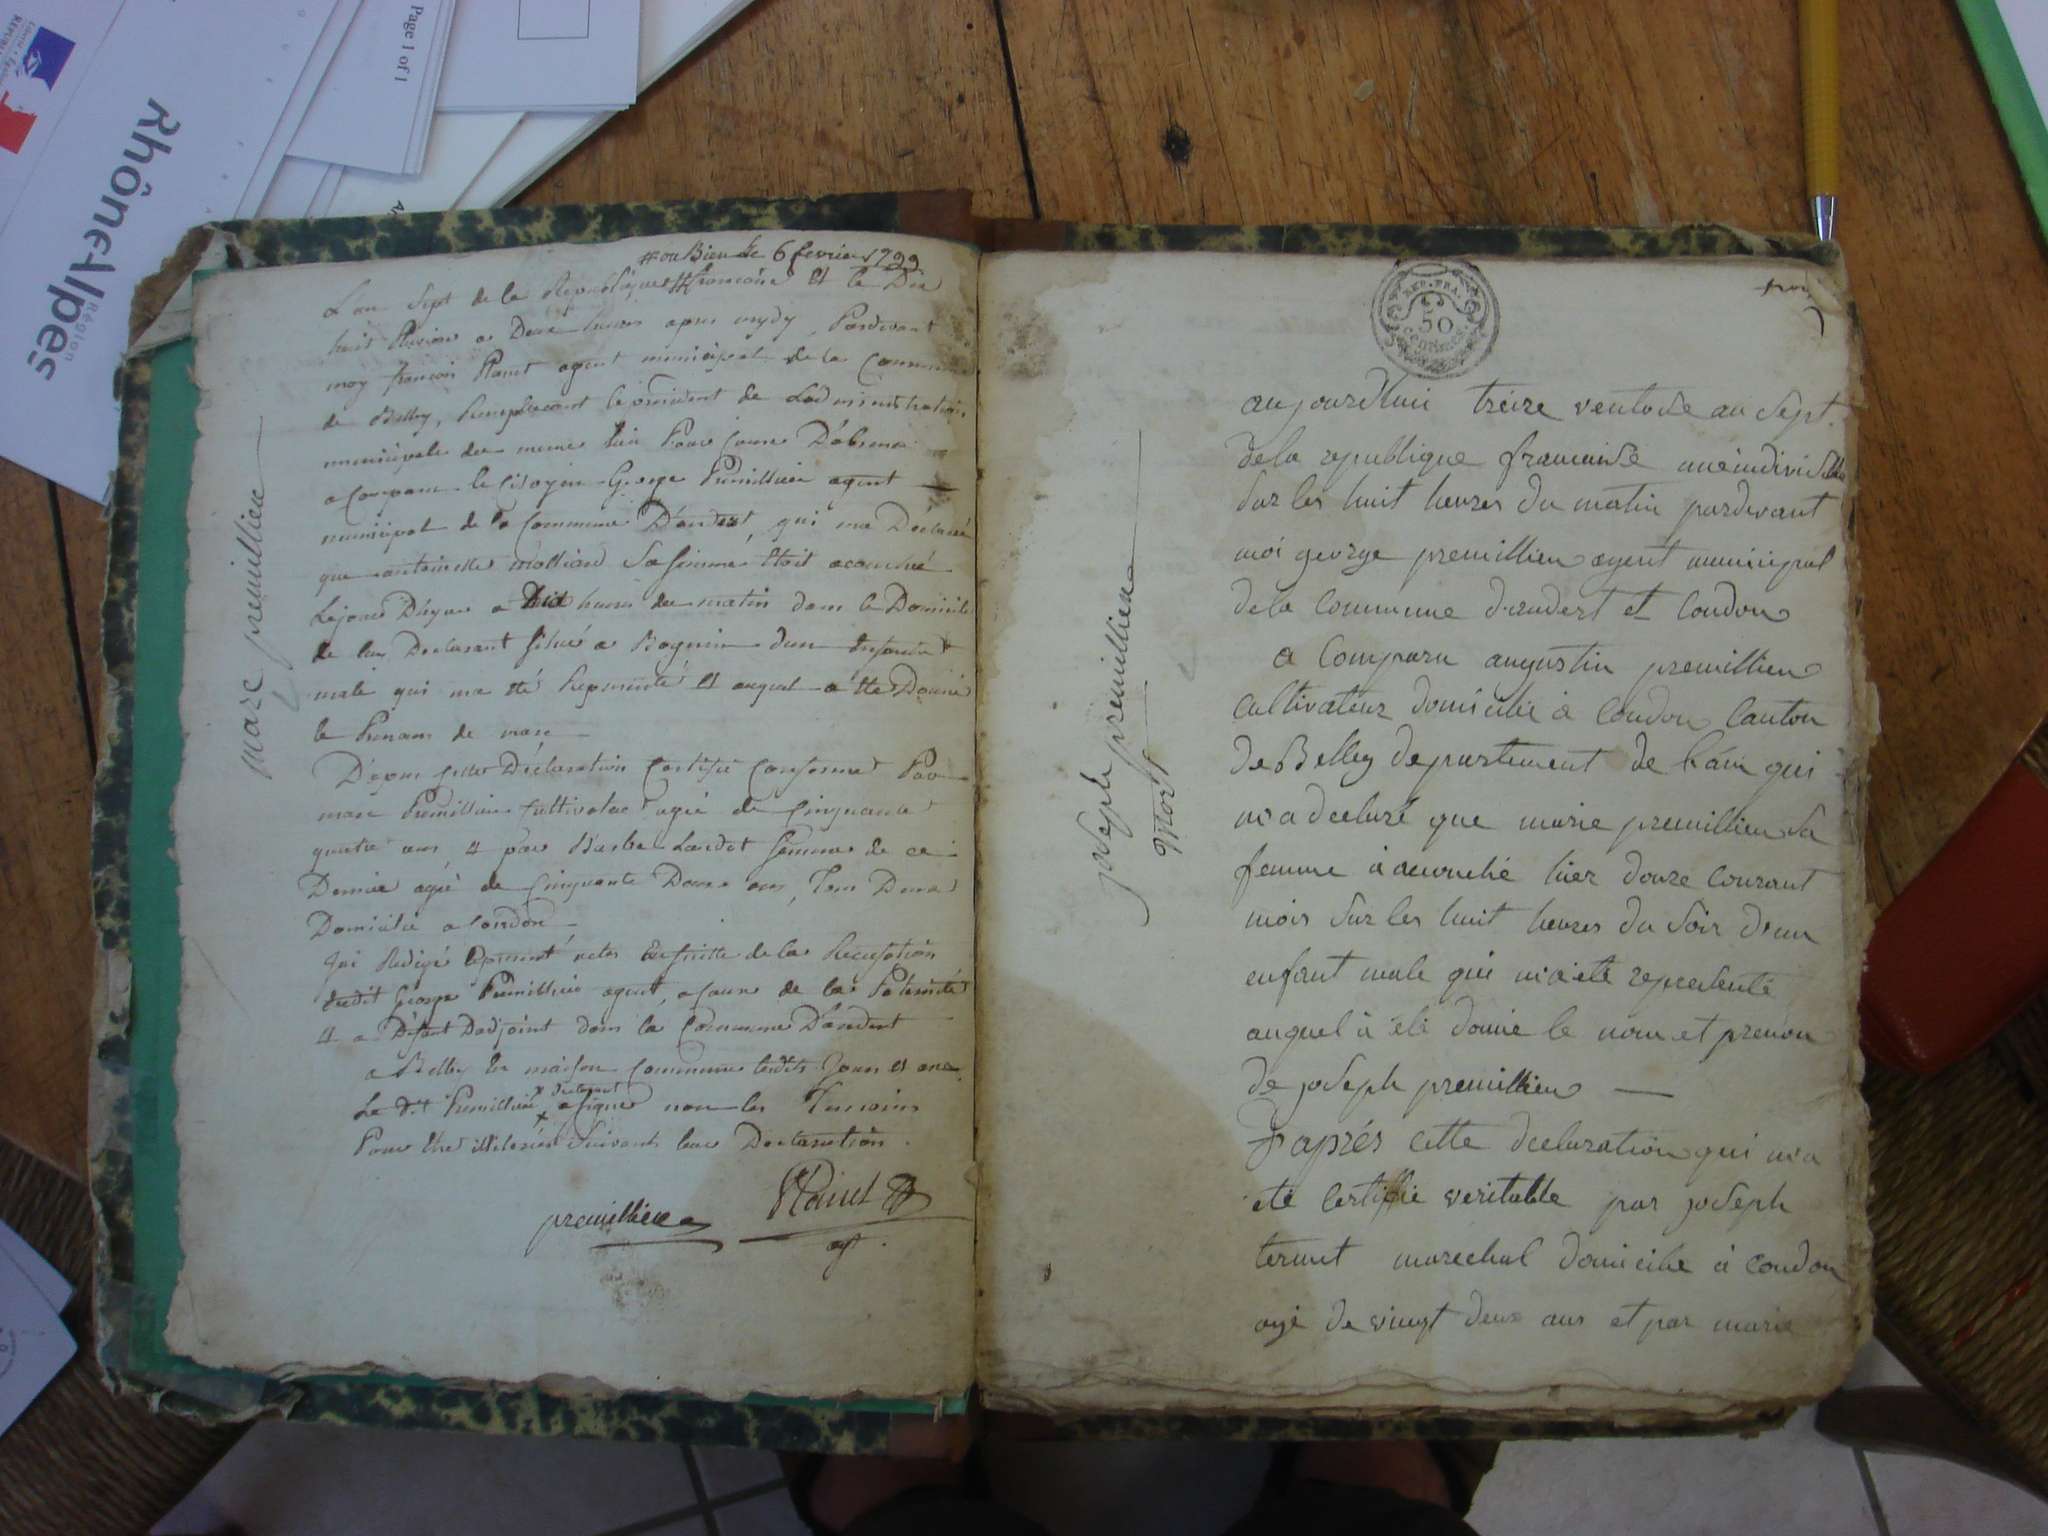 Page 1 of 1
Rhône Alpes
Région
# ou Bien le 6 fevrier 1799
L'an sept de la Republique # francoise et le Dix
huit Pluviose a Deux heures apres mydy, Pardevant
moy françois agent municipal de la Commune
de Belley, Remplacent le president de Ladministration
municipale du meme lieu Pour Cause D'absence
a Comparu le Citoyen George Premillieu agent
municipal de la Commune D'andert, qui ma Declaré
que antoinette mollion Sa femme Etoit acouché
Lejour D'hyer a Dix heures du matin dans le Domicile
de luy Declarant situé a Rognin d'un Enfant
male qui ma eté Representé et auquel a ete Donné
le Prenom de marc
D'apres cette Déclaration Certifié Conforme Par
marc Premillieu Cultivateur agé de Cinquante
quatre ans et par Barbe Lardet femme de ce
Dernier agé de Cinquante Deux ans, Tous Deux
Domicilié a Condon
Jai Redigé le present acte En suitte de la Recusation
dudit George Premillieu agent, a Cause de la Paternité
et a Défaut Dadjoint dans la Commune D'andert
a Belley En maison Commune lesdits Jour et an
Le dit Premillieu x declarant a signé non les Temoins
Pour Etre illiterés Suivant leur Declaration.
premillieu
agt
marc premillieu
REP. FRA.
50
centimes
aujourdhui treize ventose an sept
de la republique francaise une indivisible
sur les huit heures du matin pardevant
moi george premillieu agent municipal
de la commune d'andert et Condon
a Comparu augustin premillieu
cultivateur domicilié à condon Canton
de Belley departement de l'ain qui
m'a declaré que marie premillieu sa
femme à acouché hier douze courant
mois sur les huit heures du soir d'un
enfant male qui m'a eté representé
auquel à eté donné le nom et prenom
de joseph premillieu
D'aprés cette declaration qui m'a
eté certifié veritable par joseph
marechal domicilié à condon
agé de vingt deux ans et par marie
joseph premillieu
Mort